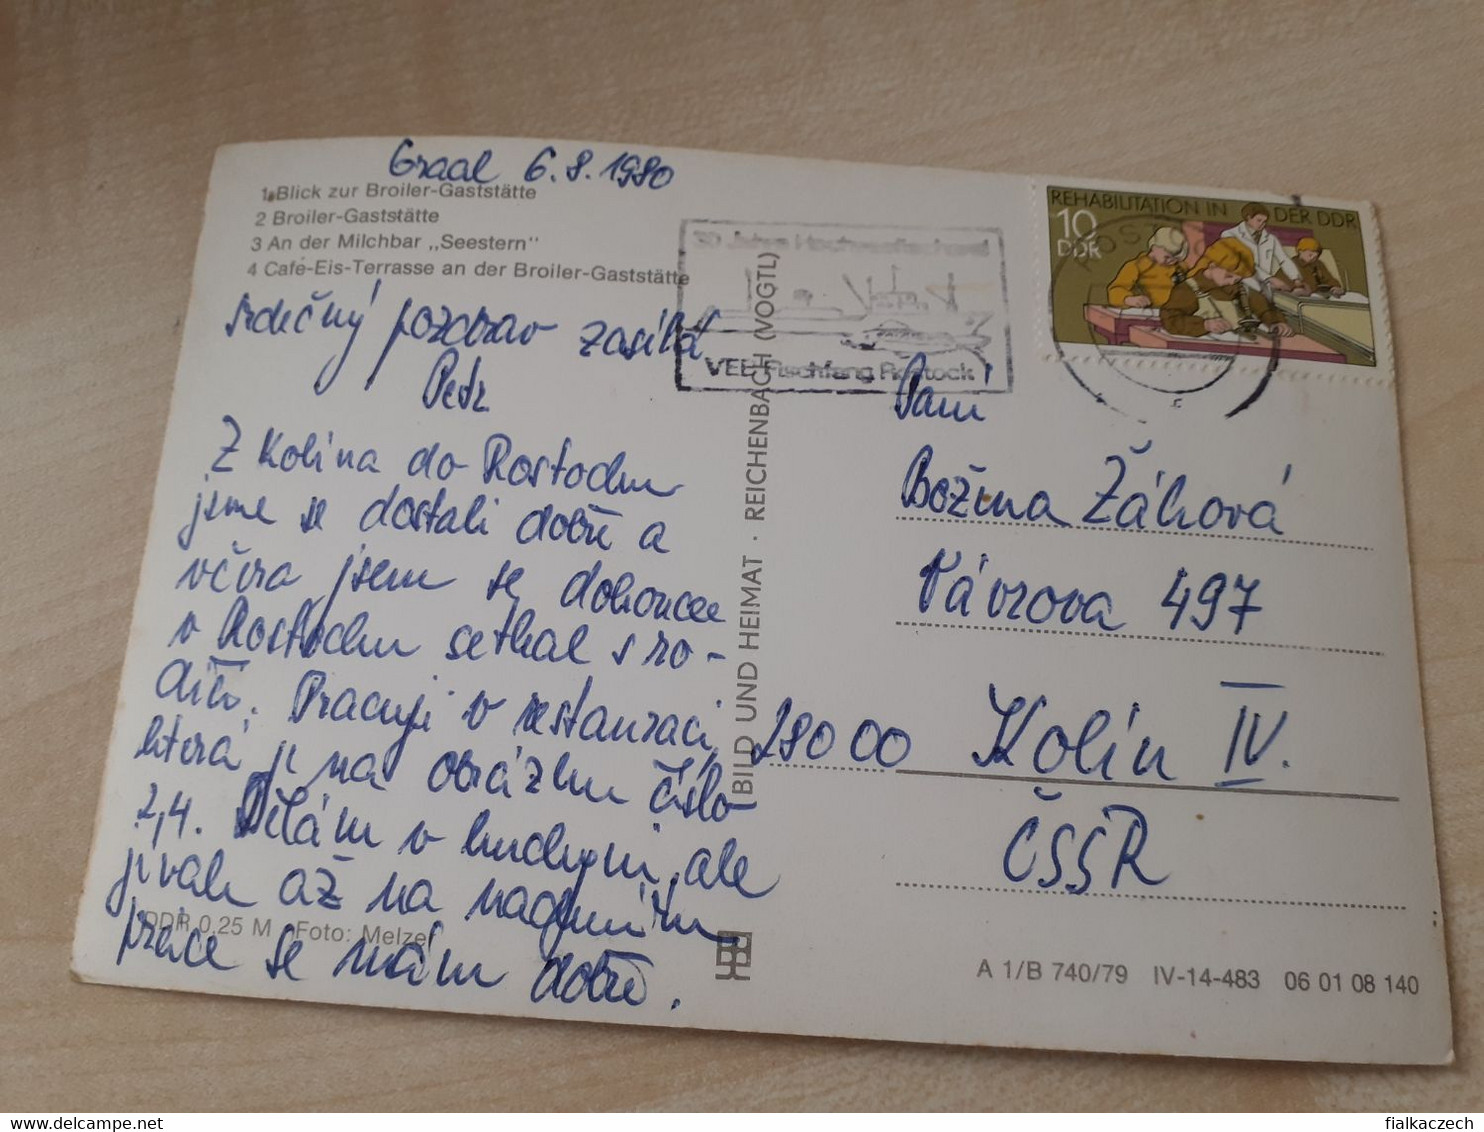 Graal 6.8.1980
1 Blick zur Broiler-Gaststätte
2 Broiler-Gaststätte
3 An der Milchbar „Seestern"
4 Café-Eis-Terrasse an der Broiler-Gaststätte
srdečný pozdrav zasílá
Petr
Z Kolína do Rostocku
jsme se dostali dobře a
včera jsem se dokonce
v Rostocku setkal s ro-
diči. Pracuji v restauraci,
která je na obrázku číslo
2,4. Dělám v kuchyni, ale
jinak až na
práce se mám dobře.
DDR 0,25 M Foto: Melzer
BILD UND HEIMAT · REICHENBACH (VOGTL)
30 Jahre Hochseefischerei
VEB Fischfang Rostock
REHABILITATION IN DER DDR
10
DDR
Paní
Božena Žáková
Távrova 497
28000 Kolín IV.
ČSSR
A 1/B 740/79 IV-14-483 06 01 08 140
fialkaczech